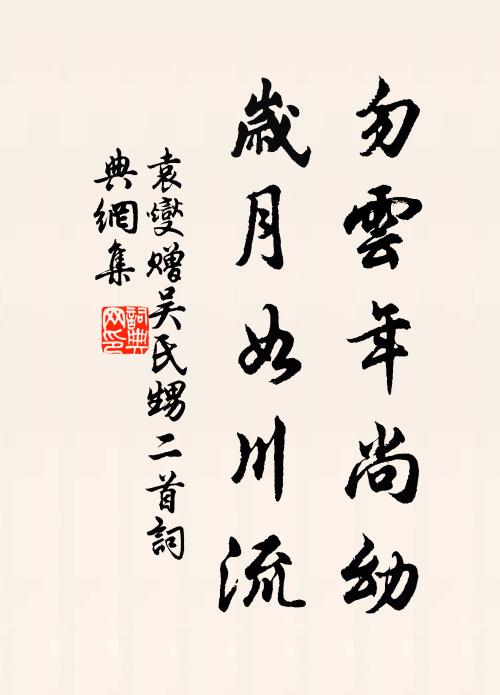 勿雲年尚幼
歲月如川流
袁燮贈吴氏甥二首詞
典網集
詞典
网印